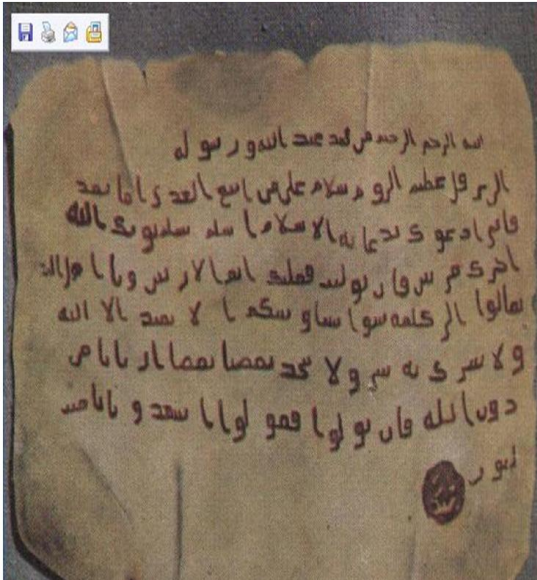 الله الرحمن الرحيم من محمد عبد الله ورسوله
الى هرقل عظيم الروم سلام على من اتبع الهدى اما بعد
فانى ادعوك بدعاية الاسلام اسلم تسلم يوتك الله
اجرك مرتين فان توليت فعليك اثم الاريسين ويا اهل
تعالوا الى كلمة سوا بيننا وبينكم الا نعبد الا الله
ولا نشرك به شيا ولا يتخذ بعضنا بعضا اربابا من
دون الله فان تولوا فقولوا اشهدوا بانا